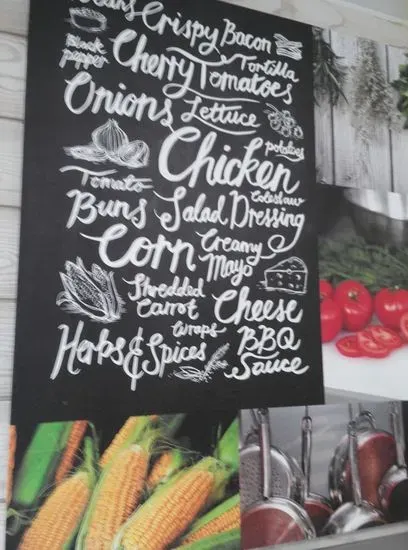 Beans Crispy Bacon
Black pepper
Cherry Tomatoes
Tortilla
Onions Lettuce
Chicken
potatoes
Tomato
Coleslaw
Buns Salad Dressing
Corn Creamy Mayo
Shredded Carrot
Cheese
Wraps
Herbs & Spices
BBQ Sauce